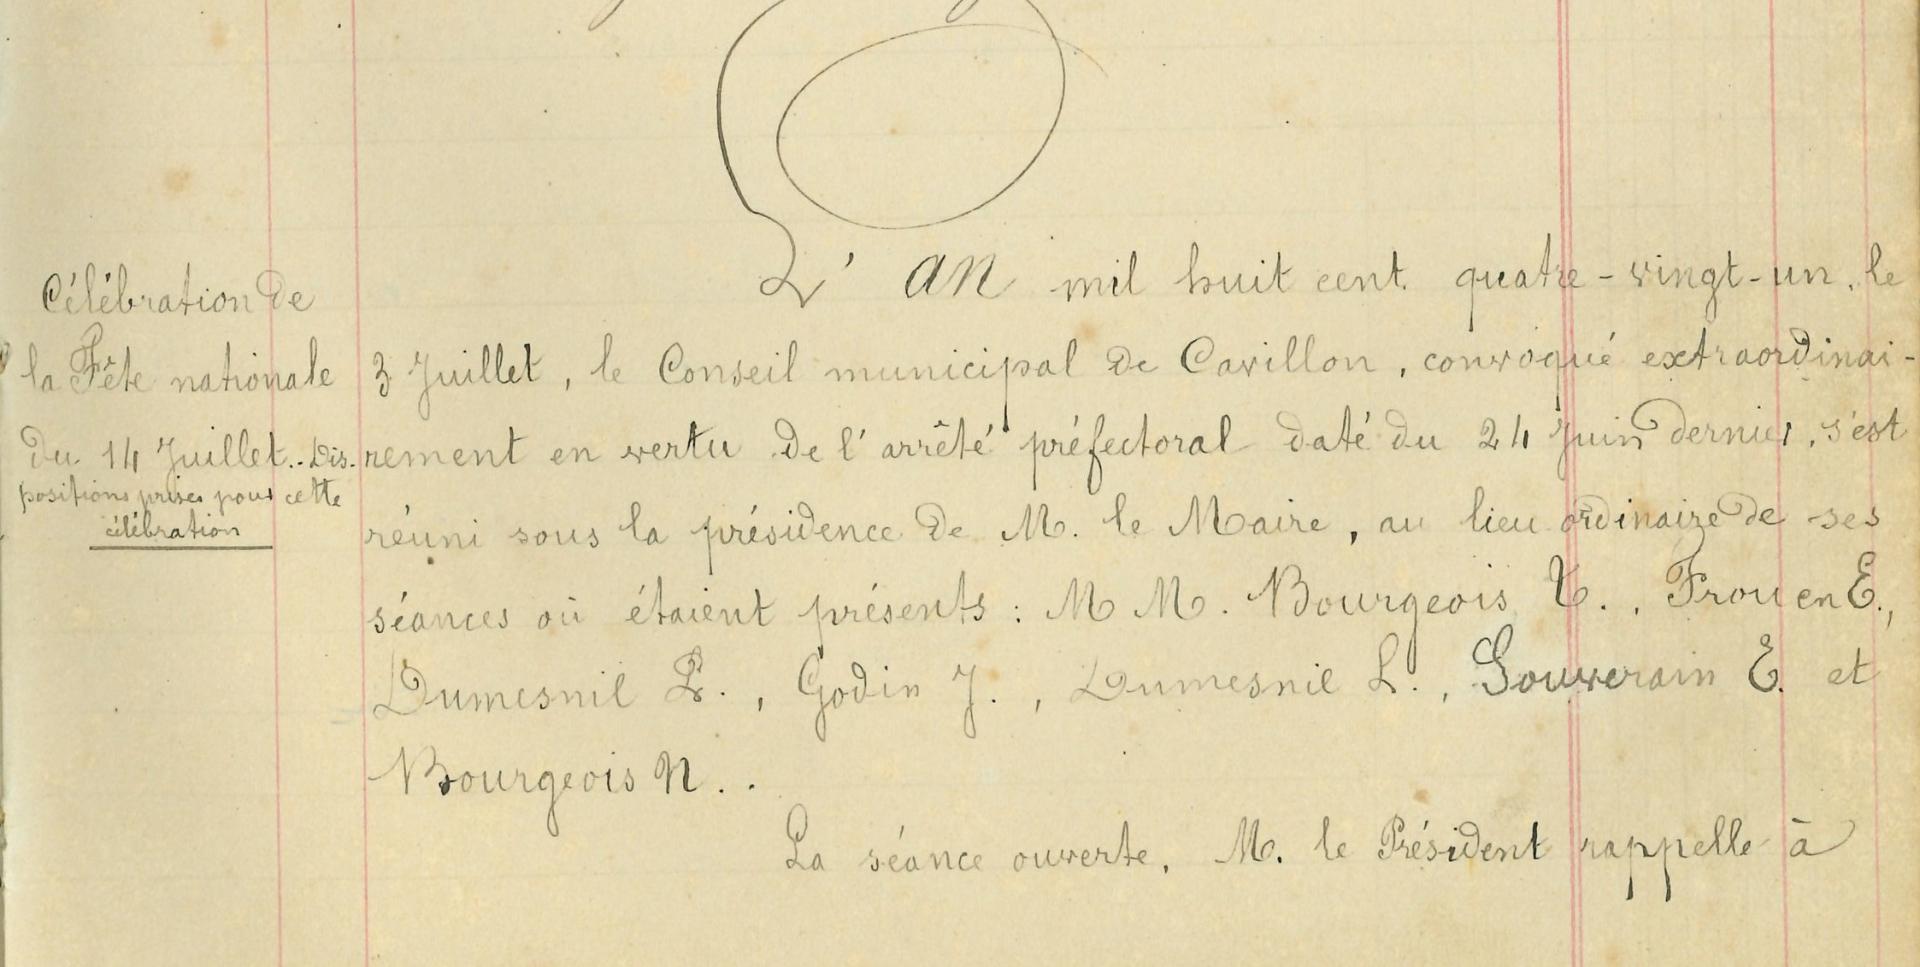 Célébration de
la Fête nationale
du 14 Juillet.. Dis.
positions prises pour cette
célébration
L' AN mil huit cent quatre-vingt-un, le
3 Juillet, le Conseil municipal de Cavillon, convoqué extraordinai-
rement en vertu de l'arrêté préfectoral daté du 24 Juin dernier, s'est
réuni sous la présidence de M. le Maire, au lieu ordinaire de ses
séances où étaient présents : M M. Bourgeois, Frouen E.,
Dumesnil, Godin J., Dumesnil L., Souverain E. et
Bourgeois N..
La séance ouverte, M. le Président rappelle à